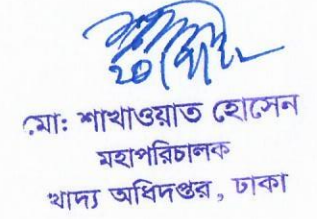 মো: শাখাওয়াত হোসেন
মহাপরিচালক
খাদ্য অধিদপ্তর, ঢাকা